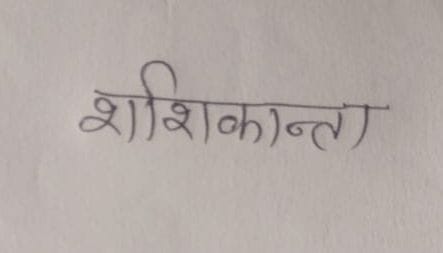 शशिकान्ता